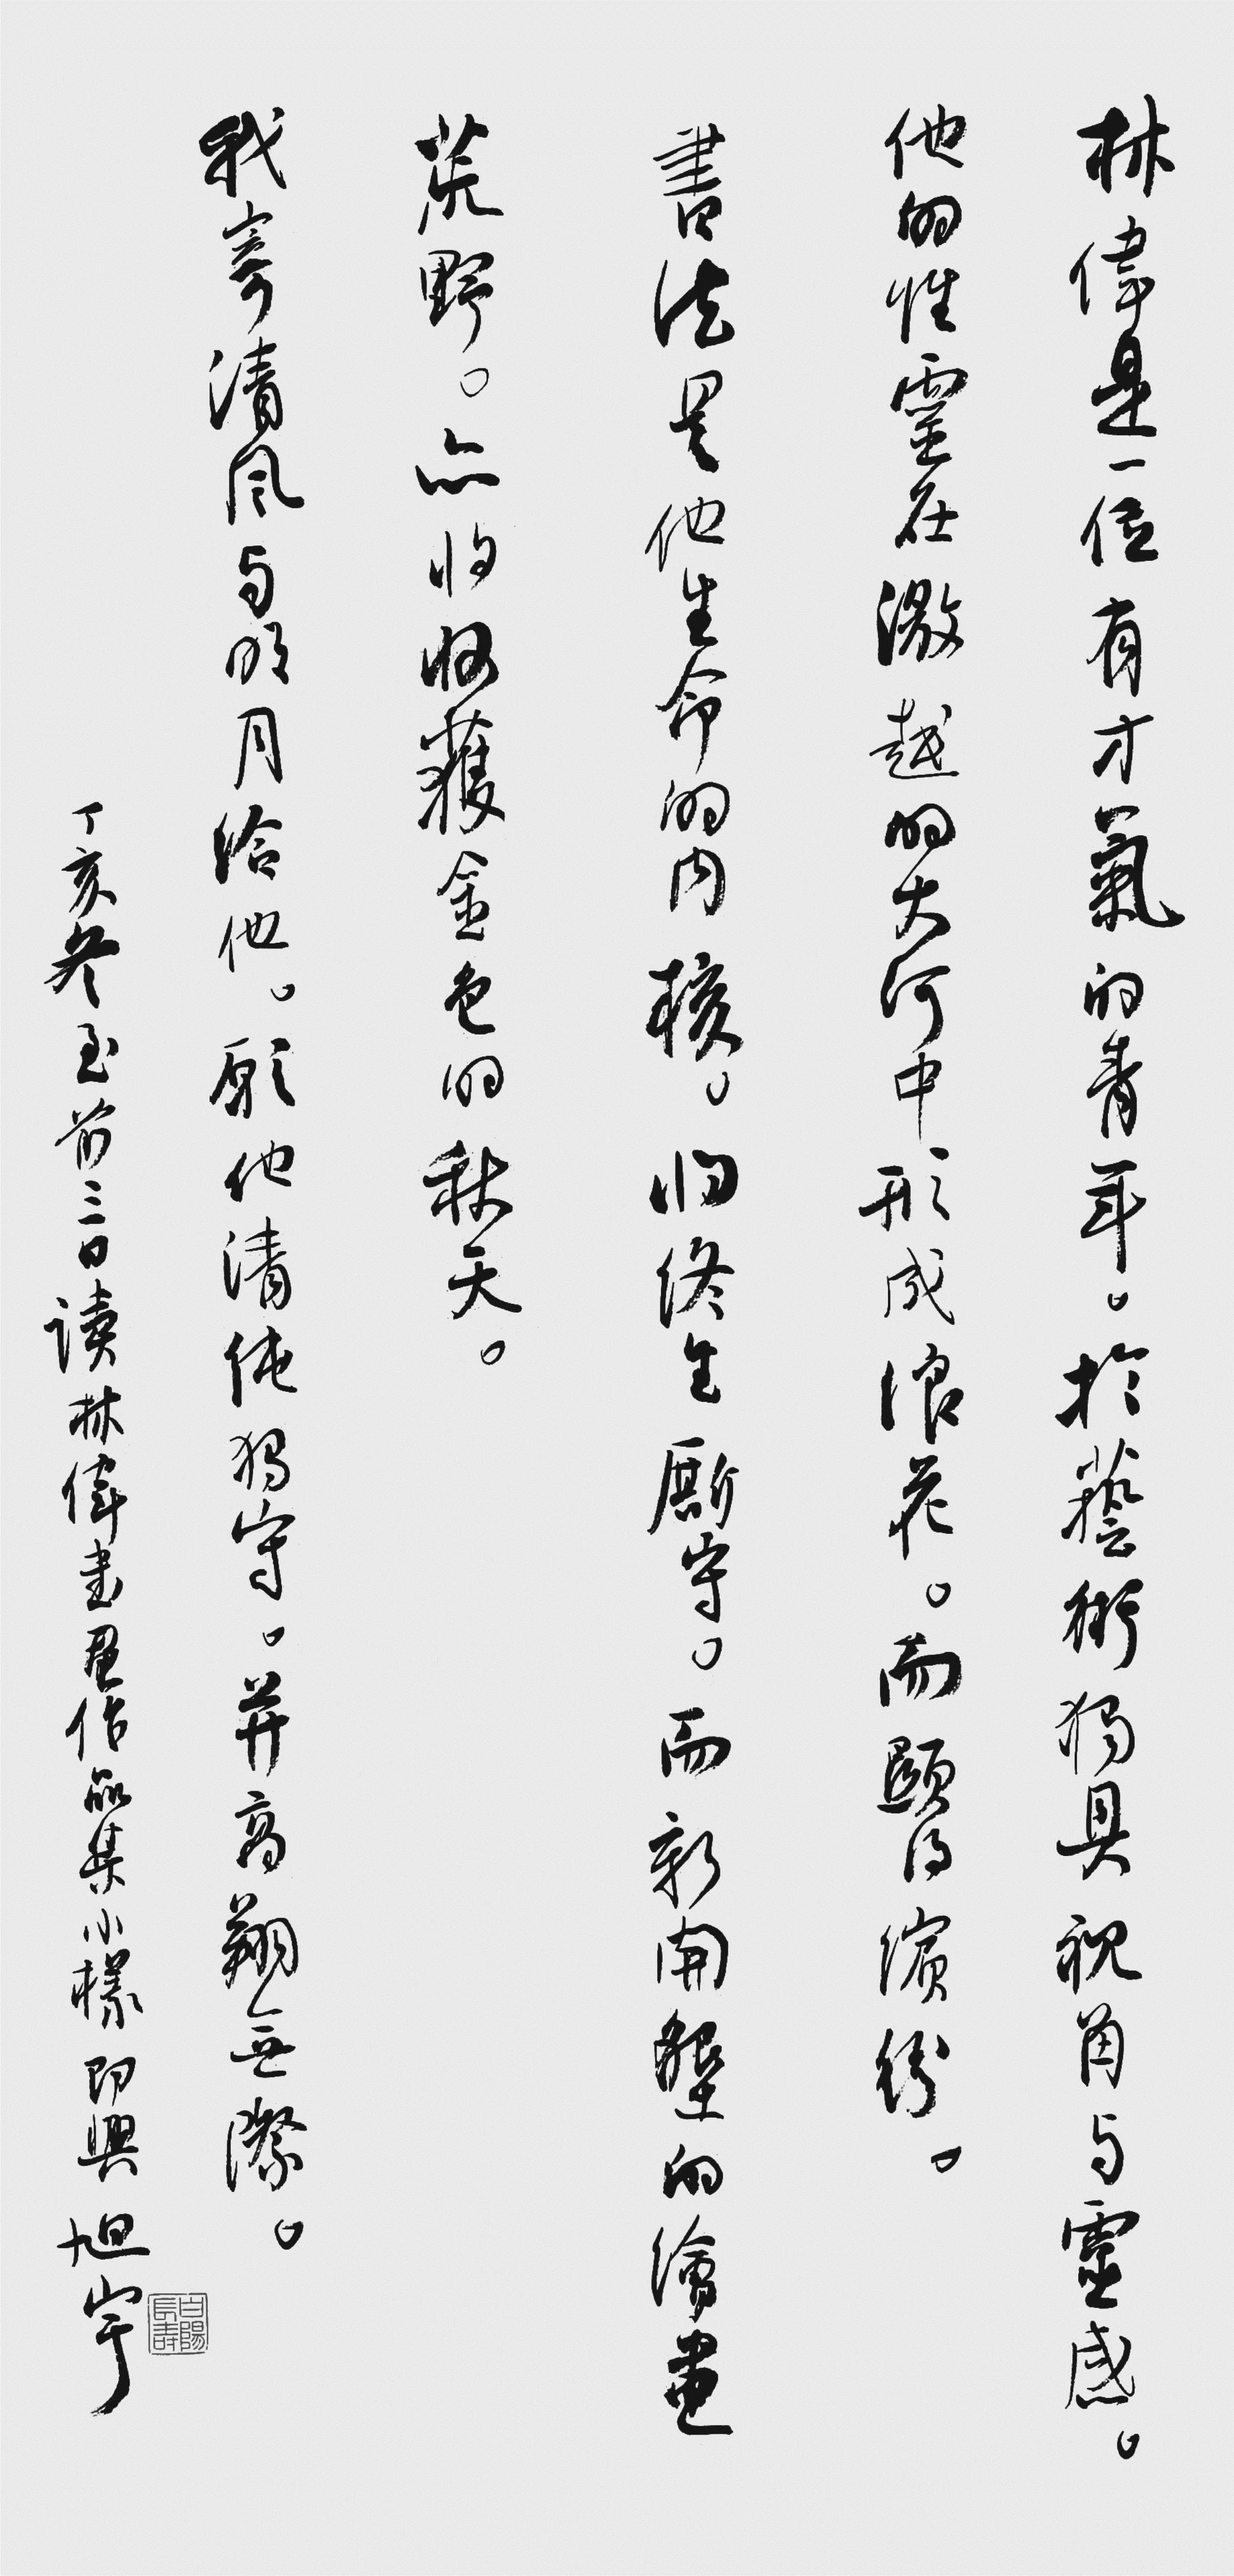 林偉是一位有才氣的青年。於藝術獨具視角与靈感。
他的性靈在激越的大河中形成浪花。而顯得繽紛。
書法是他生命的内核。将終生厮守。而新開墾的繪畫
荒野。亦将收獲金色的秋天。
我寄清风与明月给他。願他清纯獨守。并高翔無際。
丁亥冬至前三日读林偉書画作品集小樣即興 旭宇
白陽長壽